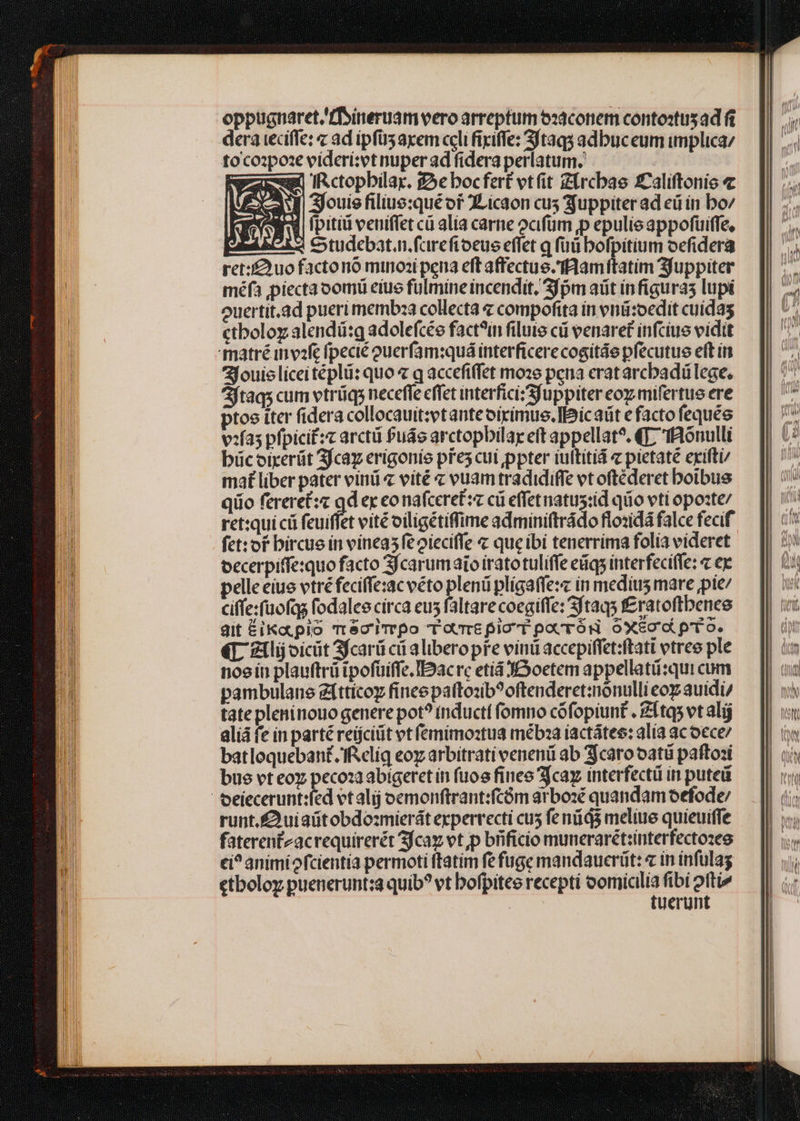 oppugnaret. Mineruam vero arreptum dꝛaconem contoꝛtuʒ ad ſi
dera ieciſſe: ⁊ ad ipſūʒ axem cęli fixiſſe: Itaqʒ adhuc eum implica/
to coꝛpoꝛe videri:vt nuper ad ſidera perlatum.
Rctophilax. De hoc fert̄ vt ſit Archas Caliſtonis ⁊
Iouis filius:quē oī Licaon cuʒ Iuppiter ad eū in ho/
ſpitiū veniſſet cū alia carne ꝯciſum ꝓ epulis appoſuiſſe.
Studebat.n.ſcire ſi deus eſſet q ſuū hoſpitium deſidera
ret:Quo facto nō minoꝛi pęna eſt affectus. Nam ſtatim Iuppiter
mēſa ꝓiecta domū eius fulmine incendit. Ip̄m aūt in figuraʒ lupi
ꝯuertit.ad pueri membꝛa collecta ⁊ compoſita in vnū:dedit cuidaʒ
ętholoꝝ alendū:q adoleſcēs fact⁹ in ſiluis cū venaret̄ inſcius vidit
matrē in vꝛſę ſpeciē ꝯuerſam:quā interficere cogitās ꝑſecutus eſt in
Iouis licei tēplū: quo ⁊ q acceſiſſet moꝛs pęna erat archadū lege.
Itaqʒ cum vtrūqʒ neceſſe eſſet interfici:Iuppiter eoꝝ miſertus ere
ptos iter ſidera collocauit:vt ante diximus. Hic aūt e facto ſequēs
vꝛſaʒ ꝓſpicit̄:⁊ arctū ſuās arctophilax eſt appellat⁹. ¶ Nōnulli
hūc dixerūt Icaꝝ erigonis p̄reʒ cui ꝓpter iuſtitiā ⁊ pietatē exiſti/
mat̄ liber pater vinū ⁊ vitē ⁊ vuam tradidiſſe vt oſtēderet hoībus
qūo ſereret̄:⁊ qd ex eo naſceret̄:⁊ cū eſſet natus:id qūo vti opoꝛte/
ret:qui cū ſeuiſſet vitē diligētiſſime adminiſtrādo floꝛidā falce feciſ
ſet: oī hircus in vineaʒ ſe ꝯieciſſe ⁊ quę ibi tenerrima folia videret
decerpiſſe:quo facto Icarum aīo irato tuliſſe eūqʒ interfeciſſe: ⁊ ex
pelle eius vtrē feciſſe:ac vēto plenū pligaſſe:⁊ in mediuʒ mare ꝓie/
ciſſe:ſuoſqʒ ſodales circa euʒ ſaltare coegiſſe: Itaqʒ Eratoſthenes
ait
¶ Alij dicūt Icarū cū a libero p̄re vinū accepiſſet:ſtati vtres ple
nos in plauſtrū īpoſuiſſe. Hac re etiā Boetem appellatū:qui cum
pambulans Atticoꝝ fines paſtoꝛib⁹ oſtenderet:nōnulli eoꝝ auidi/
tate pleni nouo genere pot⁹ inducti ſomno cōſopiunt̄. Atqʒ vt alij
aliā ſe in partē reijciūt vt ſemimoꝛtua mēbꝛa iactātes: alia ac dece/
bat loquebant̄. Reliq eoꝝ arbitrati venenū ab Icaro datū paſtoꝛi
bus vt eoꝝ pecoꝛa abigeret in ſuos fines Icaꝝ interfectū in puteū
deiecerunt:ſed vt alij demonſtrant:ſcōm arboꝛē quandam defode/
runt.Qui aūt obdoꝛmierāt experrecti cuʒ ſe nūqʒ melius quieuiſſe
faterent̄⁊ac requirerēt Icaꝝ vt ꝓ bn̄ficio munerarēt:interfectoꝛes
ei⁹ animi ꝯſcientia permoti ſtatim ſe fugę mandauerūt: ⁊ in inſulaʒ
ętholoꝝ puenerunt:a quib⁹ vt hoſpites recepti domicilia ſibi ꝯſti⸗
tuerunt